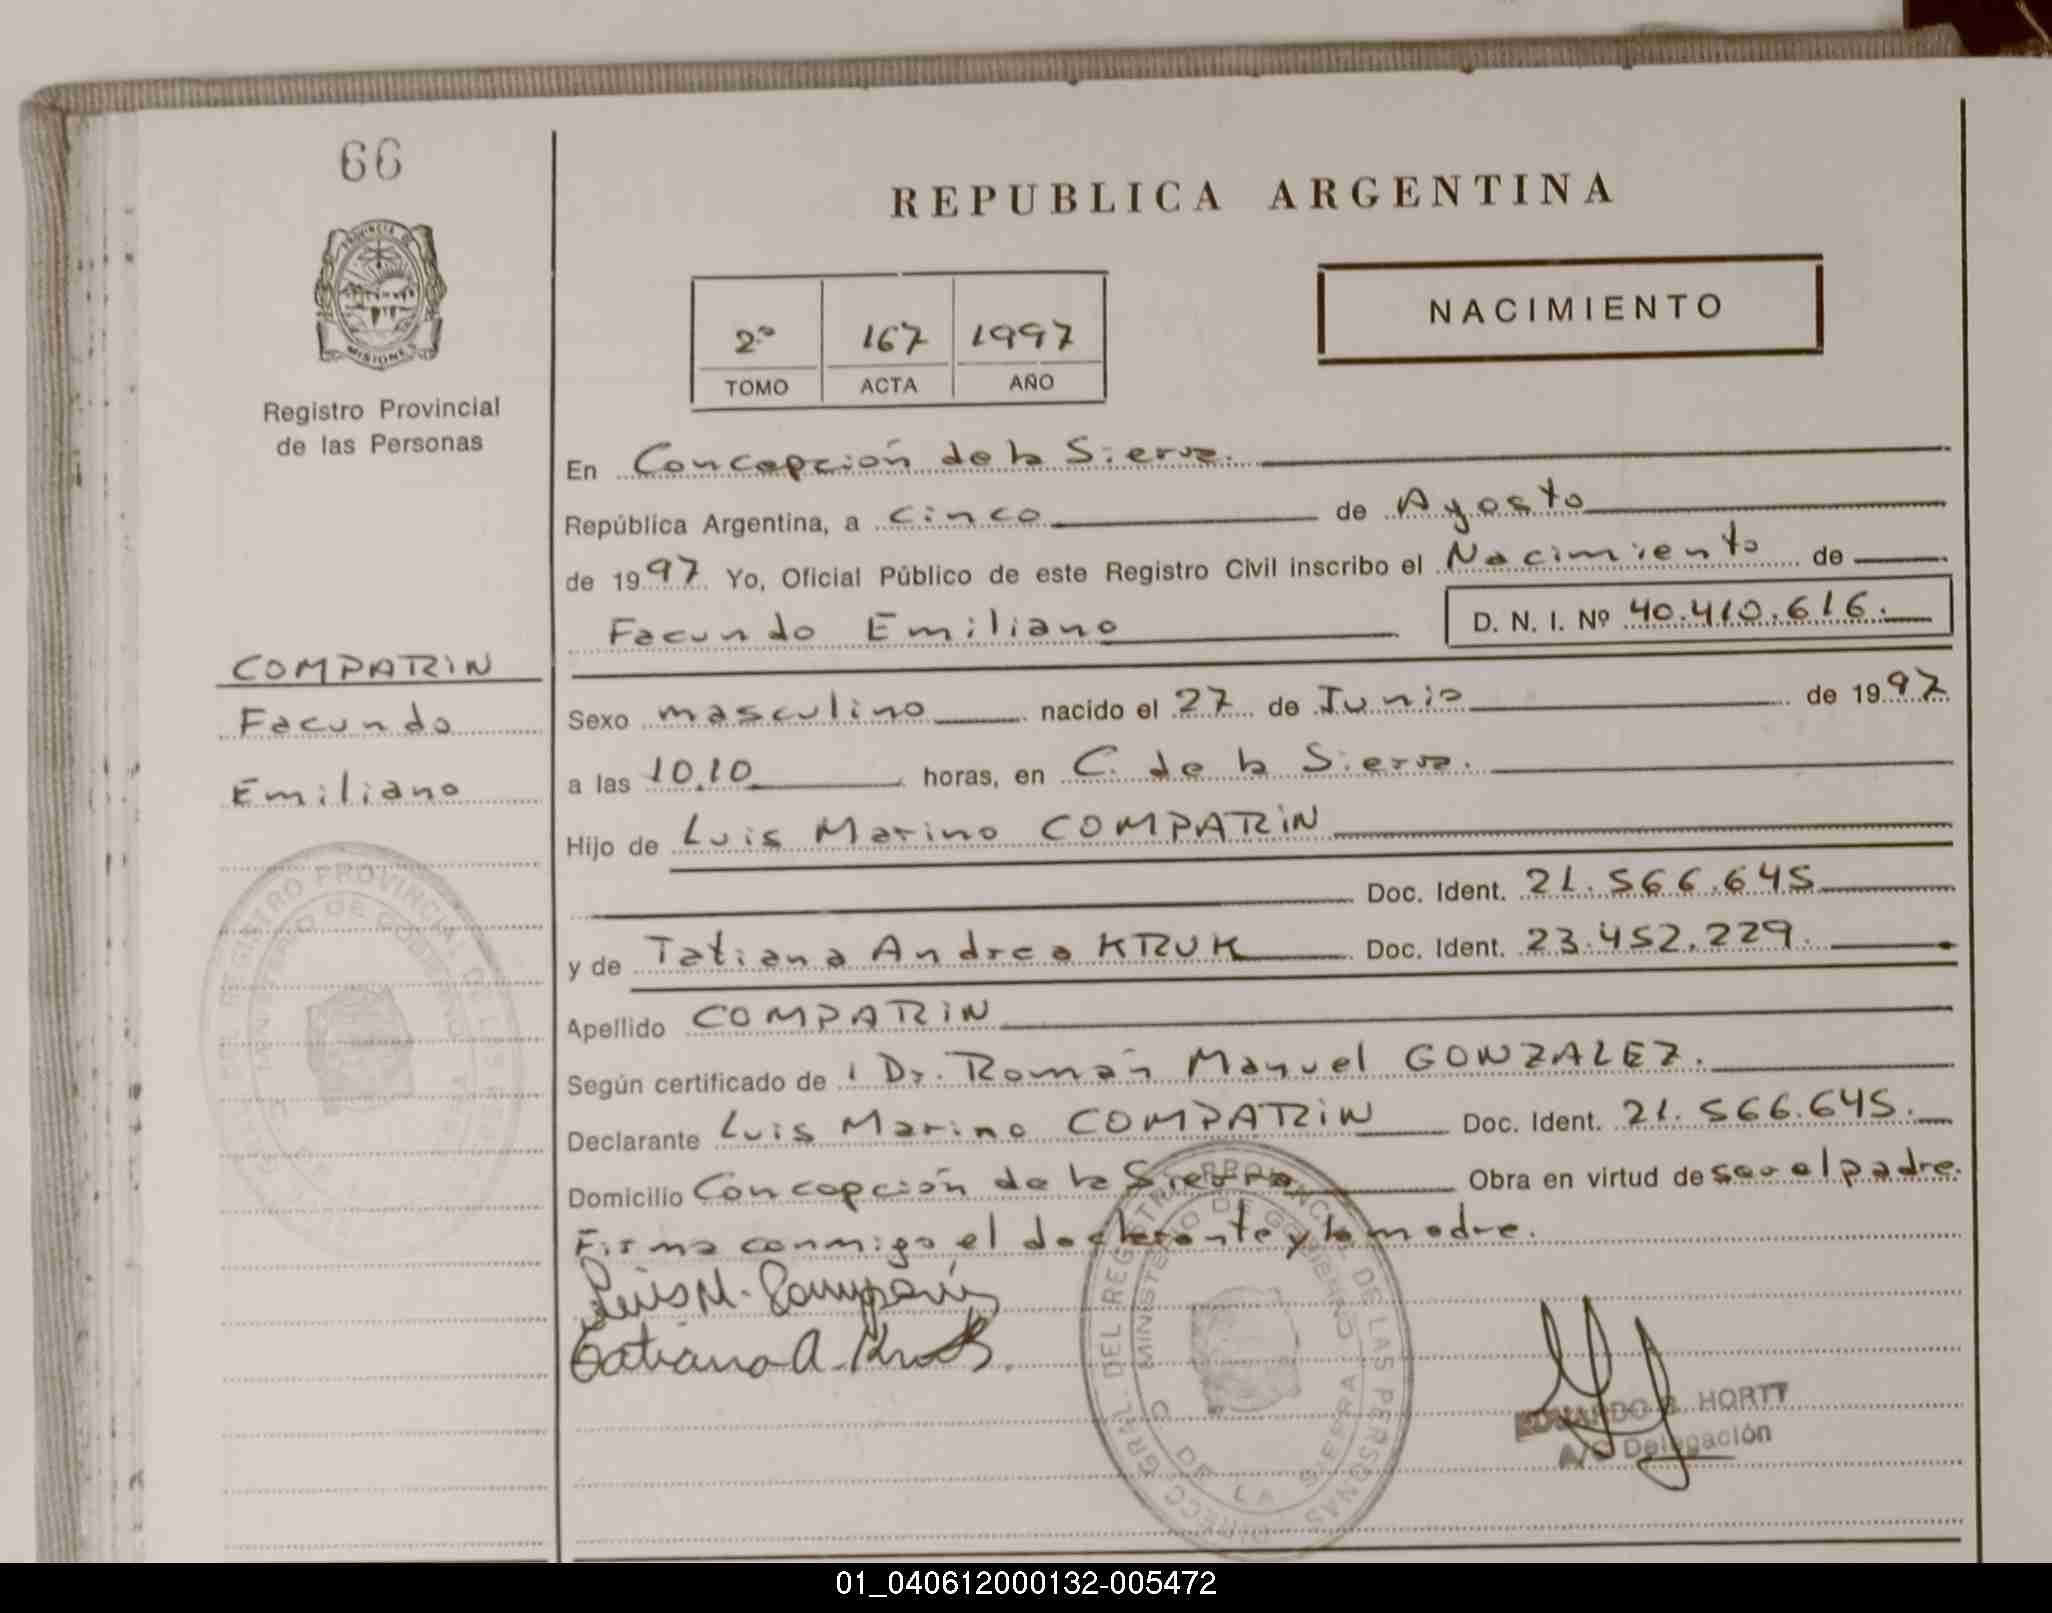 66
PROVINCIA DE
MISIONES
Registro Provincial
de las Personas
REPUBLICA ARGENTINA
2º 167 1997
TOMO ACTA AÑO
NACIMIENTO
En Concepción de la Sierra.
República Argentina, a cinco de Agosto
de 1997 Yo, Oficial Público de este Registro Civil inscribo el Nacimiento de
Facundo Emiliano D. N. I. Nº 40.410.616.
COMPARIN
Facundo
Emiliano
Sexo masculino nacido el 27 de Junio de 1997
a las 10.10 horas, en C. de la Sierra.
Hijo de Luis Marino COMPARIN
Doc. Ident. 21.566.645
y de Tatiana Andrea KRUK Doc. Ident. 23.452.229.
Apellido COMPARIN
Según certificado de Dr. Román Manuel GONZALEZ.
Declarante Luis Marino COMPARIN Doc. Ident. 21.566.645.
Domicilio Concepción de la Sierra Obra en virtud de ser el padre.
Firma conmigo el declarante y la madre.
Luis M. Comparín
Tatiana A. Kruk.
DIRECC. GRAL. DEL REGISTRO PROVINCIAL DE LAS PERSONAS
MINISTERIO DE GOBIERNO
DE LA SIERRA
EDUARDO HORTT
A/C Delegación
01_040612000132-005472